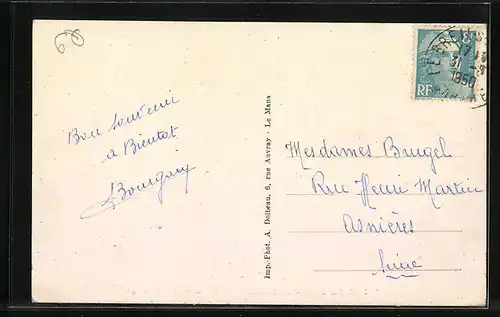 60
Bon souvenir
à Bientot
Bourguy
Imp.-Phot. A. Dolbeau, 6, rue Auvray - Le Mans
RF
17
31 - 8
1950
Mesdames Brugel
Rue Henri Martin
Asnières
Seine